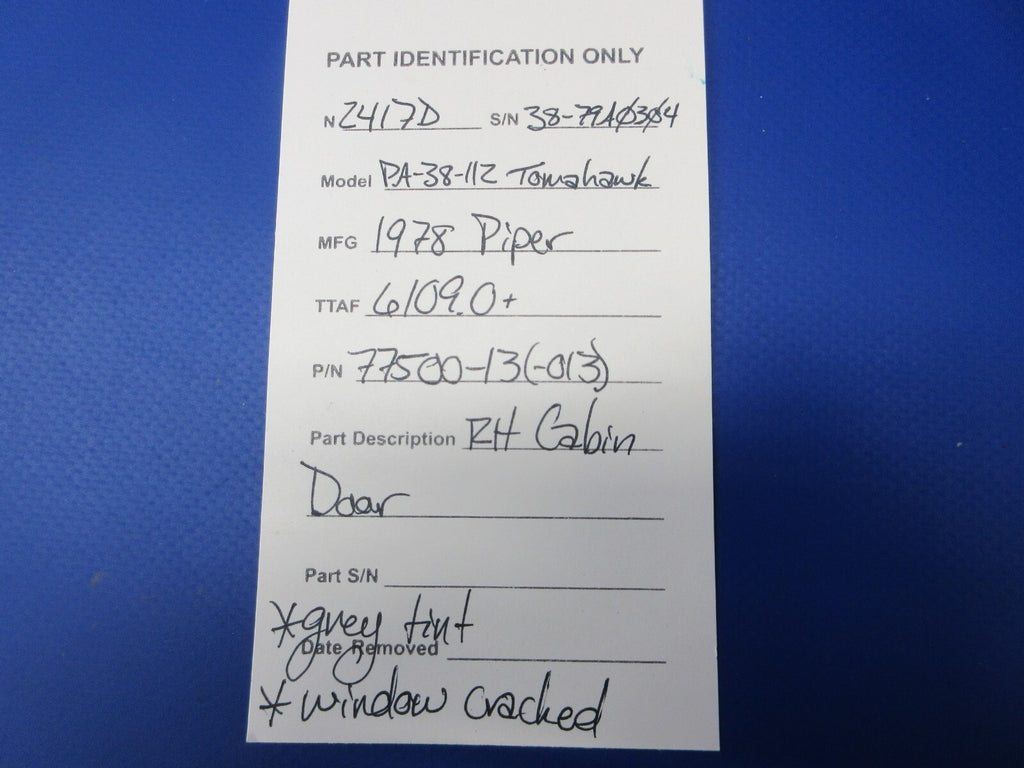 PART IDENTIFICATION ONLY
N 2417D S/N 38-79A0304
Model PA-38-112 Tomahawk
MFG 1978 Piper
TTAF 6109.0+
P/N 77500-13(-013)
Part Description RH Cabin
Door
Part S/N
*grey tint
Date Removed
* window cracked